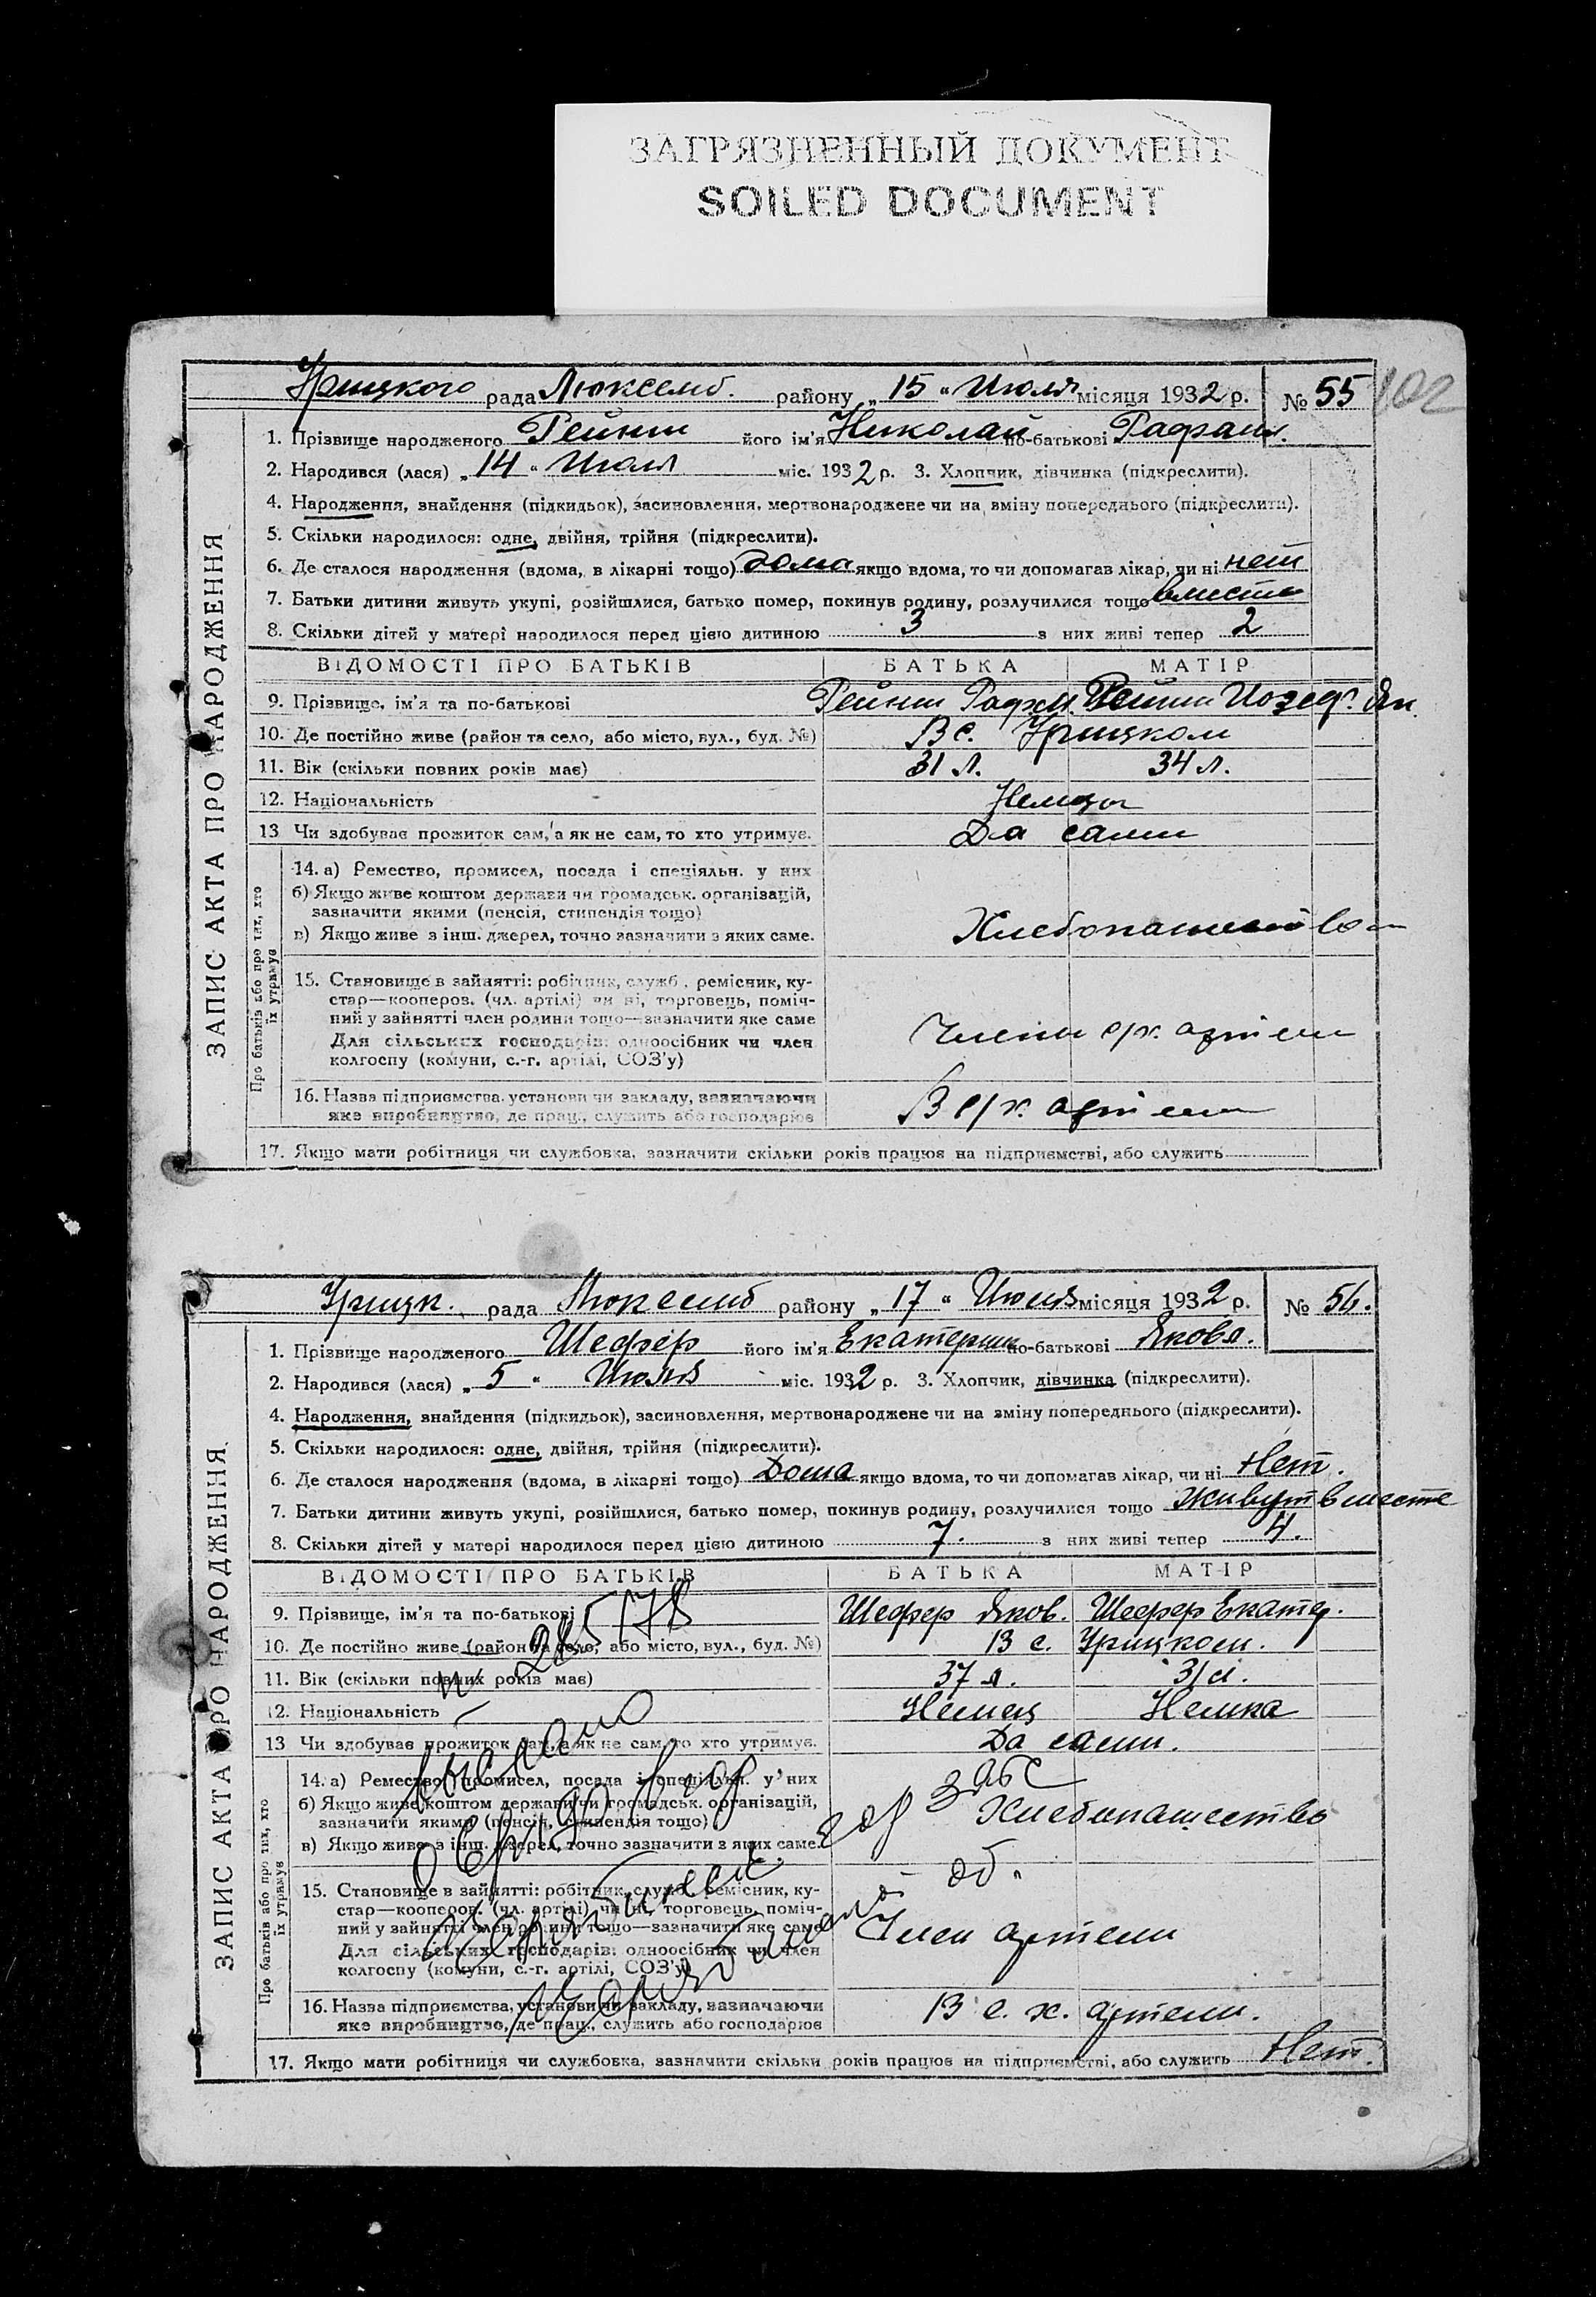 ЗАГРЯЗНЕННЫЙ ДОКУМЕНТ
SOILED DOCUMENT
Урицкого рада Люксемб. району „15“ Июля місяця 1932 р. № 55 102
ЗАПИС АКТА ПРО НАРОДЖЕННЯ
1. Прізвище народженого його ім'я Николай по-батькові
2. Народився (лася) „14“ Июля міс. 1932 р. 3. Хлопчик, дівчинка (підкреслити).
4. Народження, знайдення (підкидьок), засиновлення, мертвонароджене чи на зміну попереднього (підкреслити).
5. Скільки народилося: одне, двійня, трійня (підкреслити).
6. Де сталося народження (вдома, в лікарні тощо) дома якщо вдома, то чи допомагав лікар, чи ні нет
7. Батьки дитини живуть укупі, розійшлися, батько помер, покинув родину, розлучилися тощо вместе
8. Скільки дітей у матері народилося перед цією дитиною 3 з них живі тепер 2
ВІДОМОСТІ ПРО БАТЬКІВ БАТЬКА МАТІР
9. Прізвище, ім'я та по-батькові
10. Де постійно живе (район та село, або місто, вул., буд. №) В с. Урицком
11. Вік (скільки повних років має) 31 л. 34 л.
12. Національність Немцы
13 Чи здобуває прожиток сам, а як не сам, то хто утримує. Да сами
Про батьків або про тих, хто їх утримує
14. а) Ремество, промисел, посада і спеціяльн. у них
б) Якщо живе коштом держави чи громадськ. організацій,
зазначити якими (пенсія, стипендія тощо)
в) Якщо живе з інш. джерел, точно зазначити з яких саме. Хлебопашество
15. Становище в зайнятті: робітник, служб., ремісник, ку-
стар—коопероз. (чл. артілі) чи ні, торговець, поміч-
ний у зайнятті член родини тощо—зазначити яке саме
Для сільських господарів: одноосібник чи член
колгоспу (комуни, с.-г. артілі, СОЗ'у) Члены с/х. артели
16. Назва підприємства, установи чи закладу, зазначаючи
яке виробництво, де прац., служить або господарює В с/х. артели
17. Якщо мати робітниця чи службовка, зазначити скільки років працює на підприємстві, або служить
Урицк. рада Люксемб району „17“ Июля місяця 1932 р. № 56.
ЗАПИС АКТА ПРО НАРОДЖЕННЯ
1. Прізвище народженого Шефер його ім'я Екатерина по-батькові Яковл.
2. Народився (лася) „5“ Июля міс. 1932 р. 3. Хлопчик, дівчинка (підкреслити).
4. Народження, знайдення (підкидьок), засиновлення, мертвонароджене чи на зміну попереднього (підкреслити).
5. Скільки народилося: одне, двійня, трійня (підкреслити).
6. Де сталося народження (вдома, в лікарні тощо) Дома якщо вдома, то чи допомагав лікар, чи ні Нет.
7. Батьки дитини живуть укупі, розійшлися, батько помер, покинув родину, розлучилися тощо живут вместе
8. Скільки дітей у матері народилося перед цією дитиною 7. з них живі тепер 4.
ВІДОМОСТІ ПРО БАТЬКІВ БАТЬКА МАТІР
9. Прізвище, ім'я та по-батькові Шефер Яков. Шефер Екатер.
10. Де постійно живе (район та село, або місто, вул., буд. №) В с. Урицком.
11. Вік (скільки повних років має) 37 л. 31 л.
12. Національність Немец Немка
13 Чи здобуває прожиток сам, а як не сам, то хто утримує. Да сами.
Про батьків або про тих, хто їх утримує
14. а) Ремество, промисел, посада і спеціяльн. у них
б) Якщо живе коштом держави чи громадськ. організацій,
зазначити якими (пенсія, стипендія тощо) Хлебопашество
в) Якщо живе з інш. джерел, точно зазначити з яких саме.
15. Становище в зайнятті: робітник, служб., ремісник, ку-
стар—коопероз. (чл. артілі) чи ні, торговець, поміч-
ний у зайнятті член родини тощо—зазначити яке саме Член артели
Для сільських господарів: одноосібник чи член
колгоспу (комуни, с.-г. артілі, СОЗ'у)
16. Назва підприємства, установи чи закладу, зазначаючи В с. х. артели.
яке виробництво, де прац., служить або господарює
17. Якщо мати робітниця чи службовка, зазначити скільки років працює на підприємстві, або служить Нет.